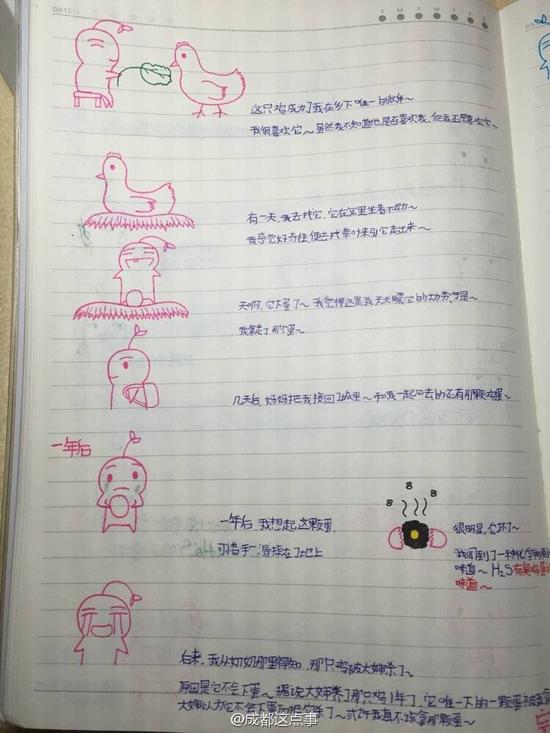 DATE
S M T W T F S
这只鸡成为了我在乡下唯一的伙伴
我很喜欢它~ 虽然我不知道它是否喜欢我, 但我还是喜欢它~
有一天, 我去找它, 它在窝里坐着不动~
我感觉好奇怪, 便去找菜叶来引它走出来~
天啊, 它下蛋了~ 我觉得这是我天天喂它的功劳, 于是~
我拿走了那个蛋~
几天后, 妈妈把我接回了城里~ 和我一起回去的还有那颗鸡蛋~
一年后
一年后, 我想起这颗蛋,
可惜手一滑摔在了地上
很明显, 它坏了~
我闻到了一种化学物质
味道~ H₂S 有臭鸡蛋
味道~
后来, 我从奶奶那里得知, 那只鸡被大婶杀了~
原因是它不会下蛋~ 据说大婶养了那只鸡1年了, 它唯一下的一颗蛋被我拿
大婶以为它不会下蛋而把它杀了~ 或许我真不该拿那颗蛋~
@成都这点事